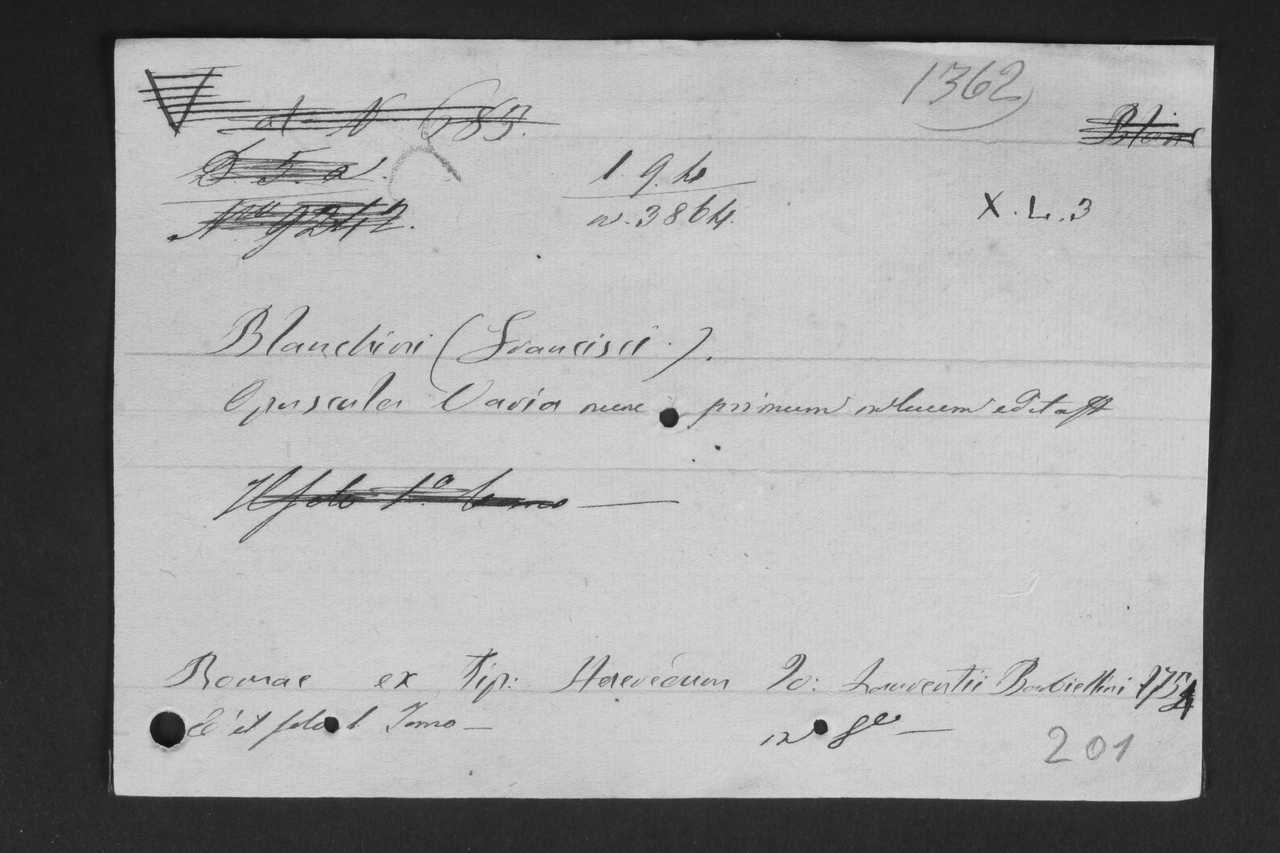 1362
D. 5. a.
N.º 9242.
1 9. 4
n. 3864.
X. L. 3
Blanchini (Francisci.).
Opuscula Varia nunc primum in lucem edita
Il solo 1.º Tomo
Romae ex Tip: Haeredum Io: Laurentii Barbiellini 1754
C'è il solo 1 Tomo
in 8º
201